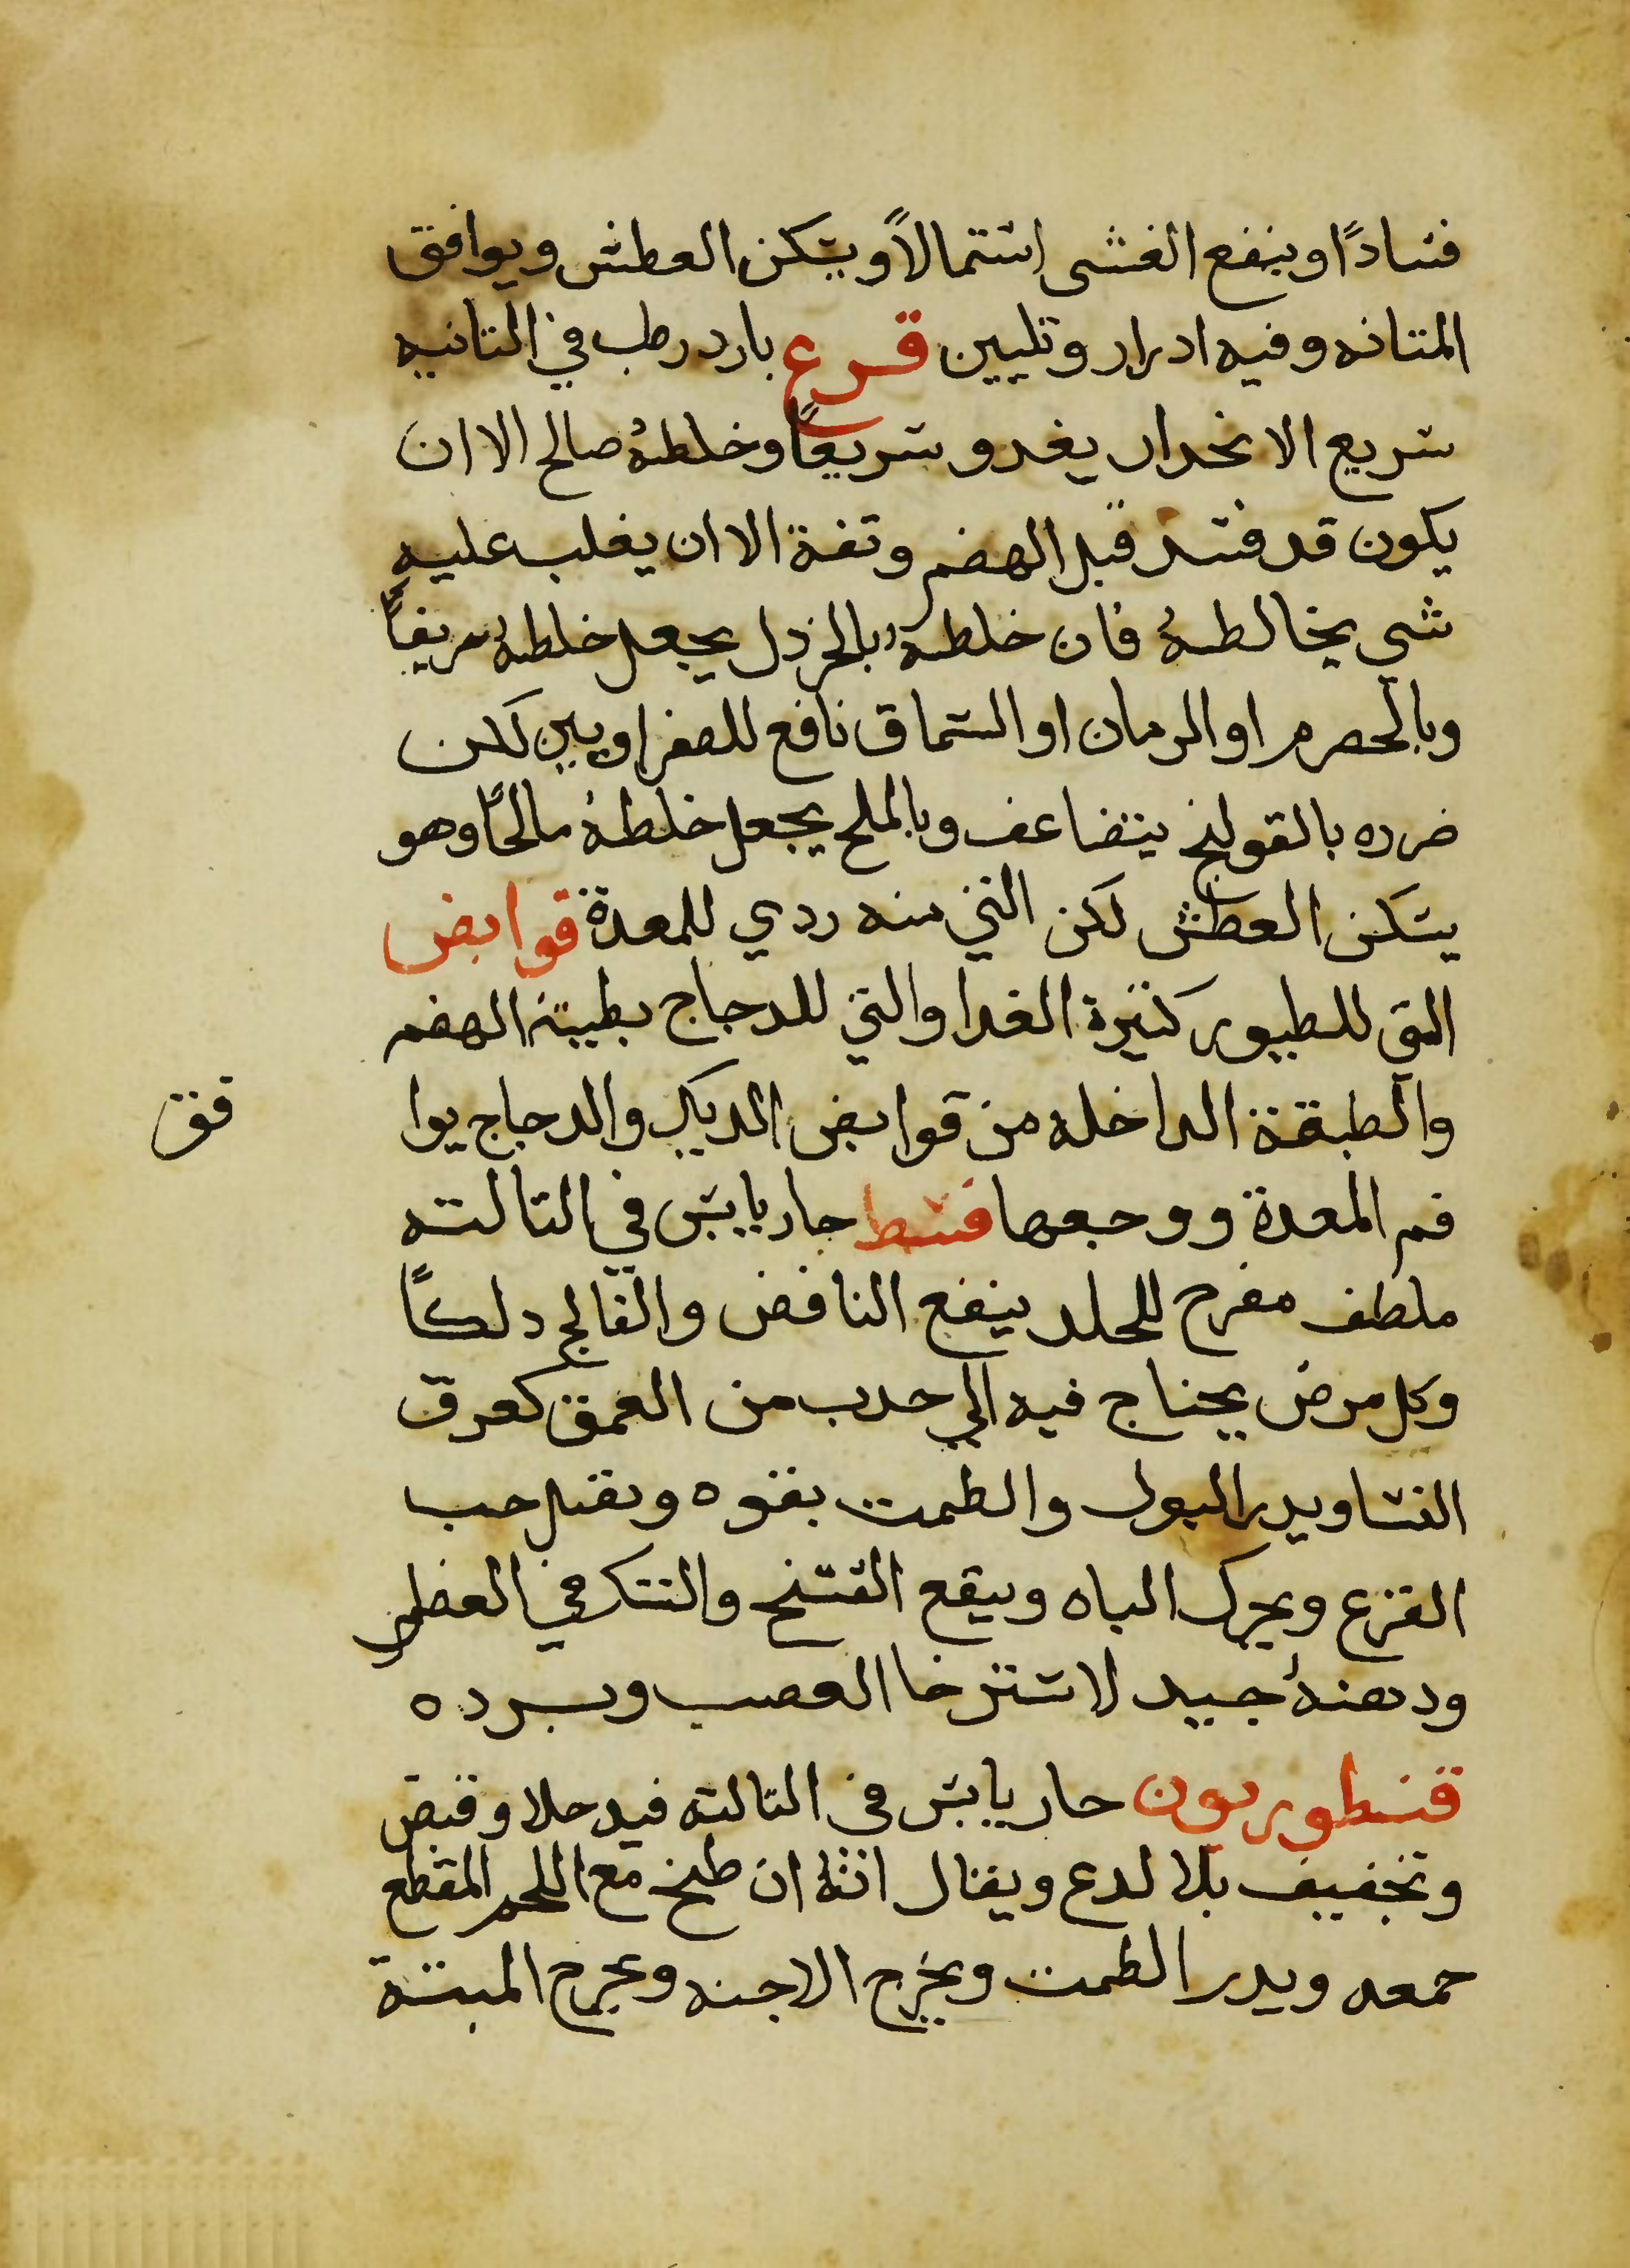 فسادًا وينفع الغشى اشتمالاً ويسكن العطش ويوافق
المثانه وفيه ادرار وتليين قرع بارد رطب في الثانيه
سريع الانحدار يغدو سريعًا وخلطهُ صالح الا ان
يكون قد فسد قبل الهضم وتفة الا ان يغلب عليه
شي يخالطهُ فان خلطهُ بالخردل يجعل خلطهُ حريفًا
وبالحصرم او الرمان او السماق نافع للصفراويين لكن
ضرره بالقولنج يتضاعف وبالملح يجعل خلطهُ مالحًا وهو
يسكن العطش لكن الني منه ردي للمعدة قوابض
التي للطيور كثيرة الغدا والتي للدجاج بطيئة الهضم
والطبقة الداخله من قوابض الديك والدجاج يوا
فق
فم المعدة ووجعها قسط حار يابس في الثالثه
ملطف مقرح للجلد ينفع النافض والفالج دلكًا
وكل مرض يحتاج فيه الي جدب من العمق كعرق
النسا ويدر البول والطمث بقوه ويقتل حب
القزع ويحرك الباه وينفع الفسخ والهتك في العضل
ودهنهُ جيد لاسترخا العصب وبرده
قنطوريون حار يابس في الثالثه فيه جلا وقبض
وتجفيف بلا لدع ويقال انهُ ان طبخ مع اللحم المقطع
جمعه ويدر الطمث ويخرج الاجنه ويخرج الميتة